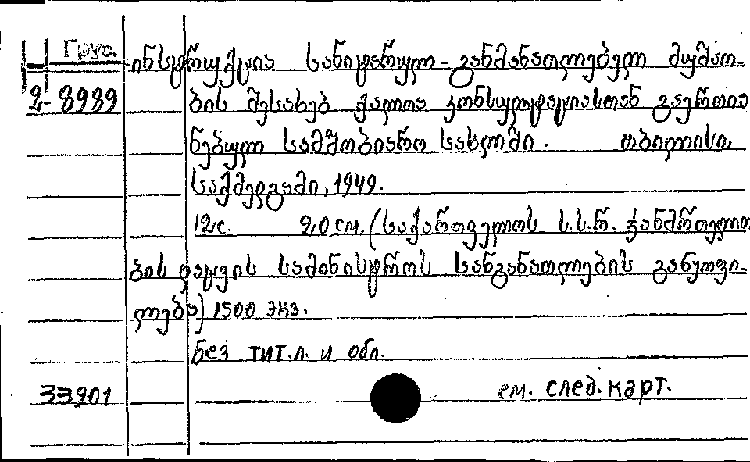 Груз. ინსტრუქცია სანიტარულ-განმანათლებელ მუშაო-
2-8989 ბის შესახებ ქალთა კონსულტაციასთან გაერთია
ნებულ სამშობიარო სახლში. თბილისი
საქმედგამი, 1949.
12с. 20см. (საქართველოს ს.ს.რ. ჯანმრთელო
ბის დაცვის სამინისტროს სანგანათლების განყოფი-
ლება) 1500 экз.
без тит.л. и обл.
33901 см. след. карт.